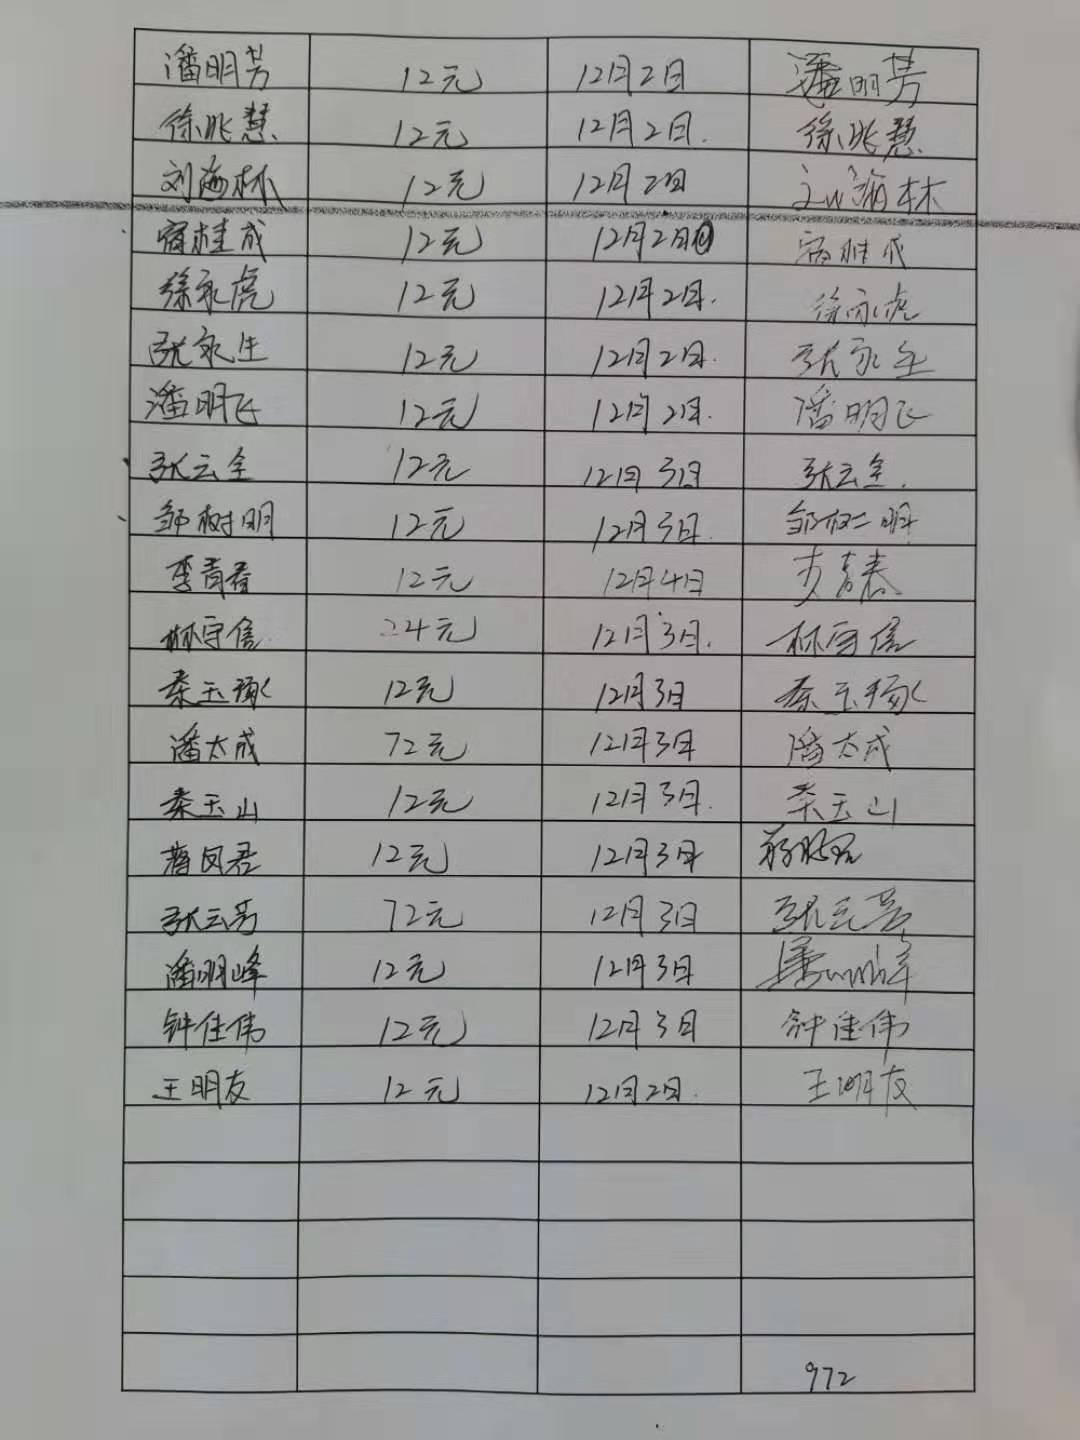 潘明芳 12元 12月2日 潘明芳
徐兆慧 12元 12月2日. 徐兆慧
刘海林 12元 12月2日 刘海林
宿桂成 12元 12月2日 宿桂成
徐永虎 12元 12月2日. 徐永虎
张永生 12元 12月2日. 张永生
潘明飞 12元 12月2日. 潘明飞
张云全 12元 12月3日 张云全.
邹树明 12元 12月3日. 邹树明
李青春 12元 12月4日 李青春
林守信 24元 12月3日. 林守信
秦玉琢 12元 12月3日 秦玉琢
潘太成 72元 12月3日 潘太成
秦玉山 12元 12月3日. 秦玉山
蒋凤君 12元 12月3日
张云芳 72元 12月3日 张云芳
潘明峰 12元 12月3日 潘明峰
钟佳伟 12元 12月3日 钟佳伟
王明友 12元 12月2日. 王明友
972